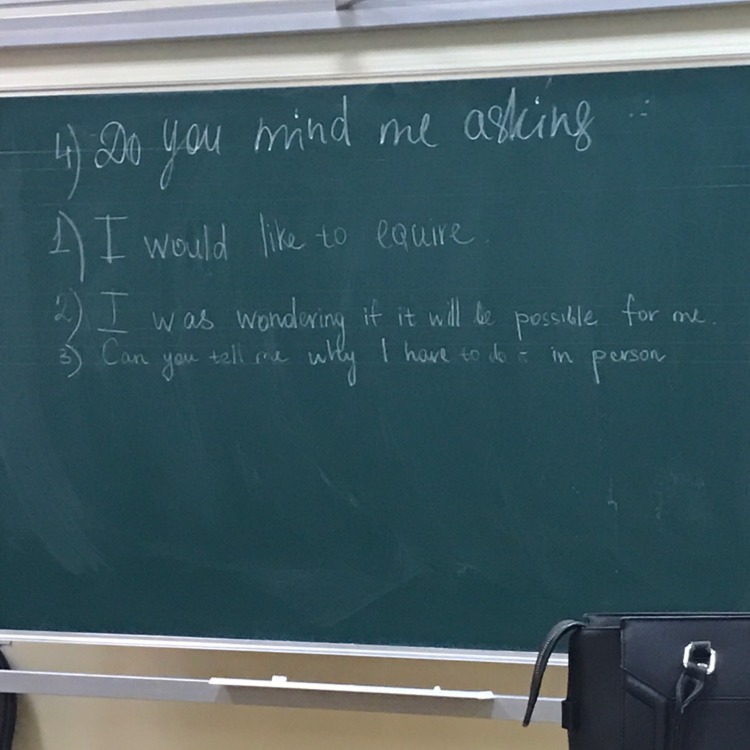 4) Do you mind me asking
1) I would like to equire
2) I was wondering if it will be possible for me.
3) Can you tell me why I have to do in person